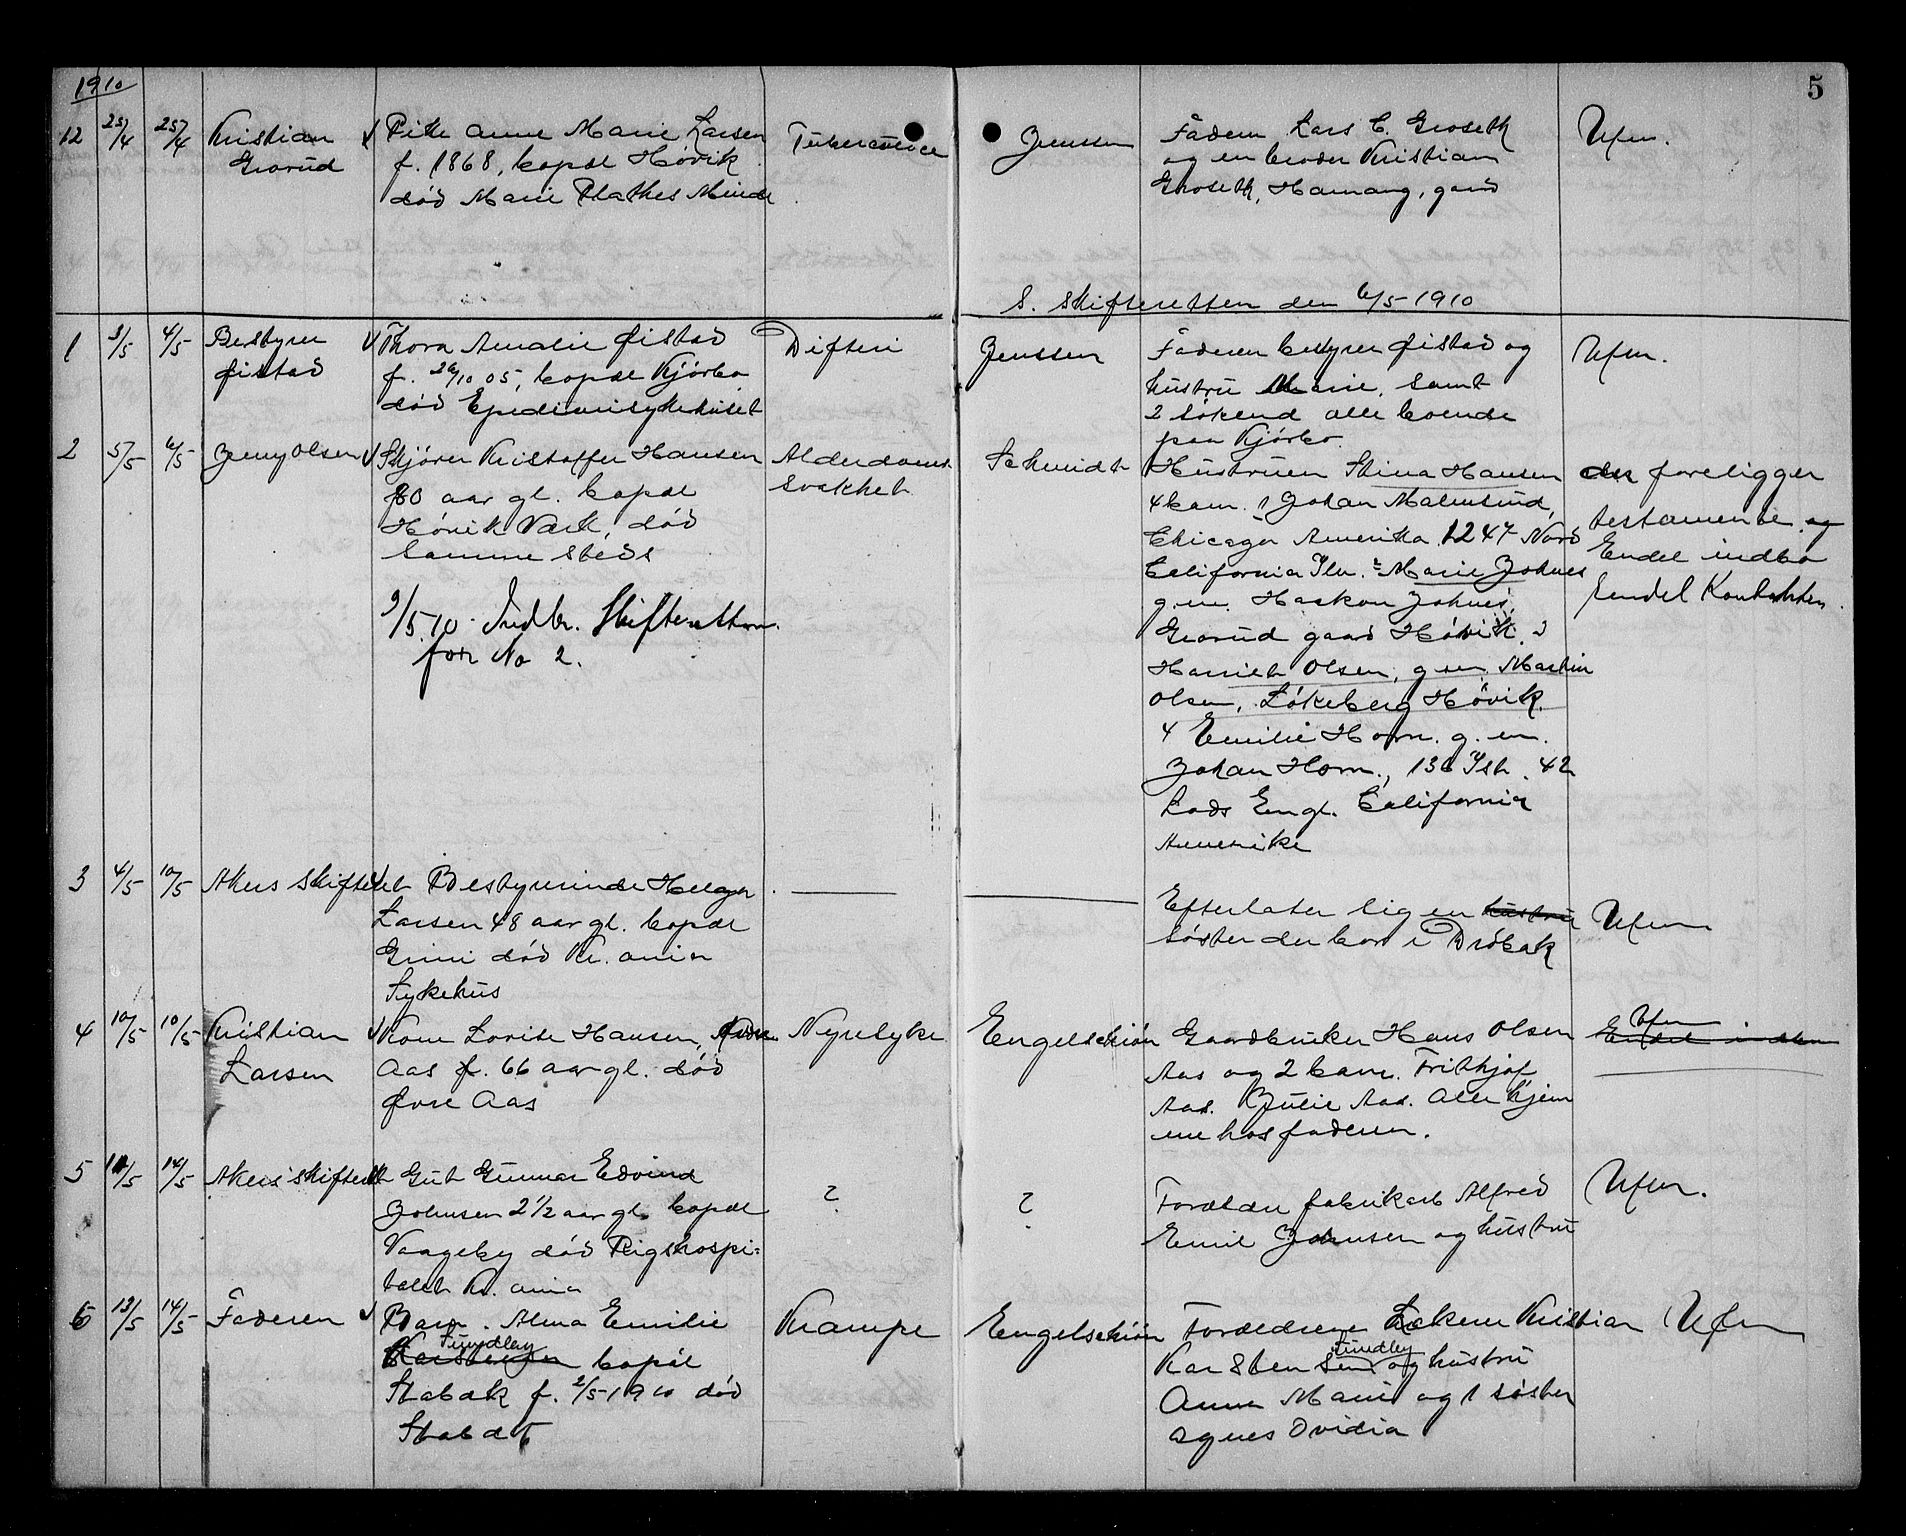 1910
5
12 25/4 25/4 Kristian Grorud
√ Pike Anne Marie Larsen
f. 1868, bopæl Høvik
død Marie Plathes Minde
Tuberculose
Jenssen
Faderen Lars C. Groseth
og en broder Kristian
Groseth, Hamang, gård
Ufm.
S. Skifteretten den 6/5 1910
1 3/5 4/5 Bestyrer Øistad
√ Thora Amalie Øistad
f. 26/10 05, bopæl Kjørbo
død Epidemisykehuset
Difteri
Jenssen
Faderen bestyrer Øistad og
hustru Marie, samt
2 søskend alle boende
paa Kjørbo.
Ufm.
2 5/5 6/5 Jenny Olsen
√ Skjører Kristoffer Hansen
80 aar gl. bopæl
Høvik Værk, død
samme steds
Alderdoms
svakhet
Schmidt
Hustruen Stina Hansen
4 barn. 1 Johan Malmsund,
Chicago Amerika 1247 Nord
California Ilu. 2 Marie Johnes
g.m. Haakon Johnes,
Grorud gaard Høvik. 3
Harriet Olsen, g.m. Martin
Olsen, Løkeberg Høvik.
4 Emilie Horn. g.m.
Johan Horn., 136 Ish. 42
Lods Engl. California
Amerika
der foreligger
testamente og
Endel indbo
endel Kontanter.
9/5.10. Indbr. Skifteretten
for No 2.
3 4/5 10/5 Akers Skifteret
Bestyrerinde Helga
Larsen 48 aar gl. bopæl
Grini død Kr.ania
Sykehus
Efterlater sig en hustru
søster der bor i Drøbak
Ufm
4 10/5 10/5 Kristian Larsen
√ Kone Lovise Hansen, Øvre
Aas f. 66 aar gl. død
Øvre Aas
Nyresyke
Engelschiøn
Gaardbruker Hans Olsen
Aas og 2 barn. Frithjof
Aas. Julie Aas. Alle hjem
me hos faderen.
Ufm
Endel indbo
5 11/5 14/5 Akers skifteret
Gut Gunnar Edvind
Johnsen 2 1/2 aar gl. bopæl
Vaageby død Rigshospi=
talet Kr.ania
?
?
Forældre fabrikarb Alfred
Emil Johnsen og hustru
Ufm.
6 13/5 14/5 Faderen
√ Barn. Alma Emilie
Tundley
Karstensen bopæl
Stabæk f. 2/5 1910 død
Stabæk
Krampe
Engelschiøn
Forældrene Lækeren Kristian
Tundley
Karsten sen og hustru
Anna Marie og 1 søster
Agnes Ovidia
Ufm